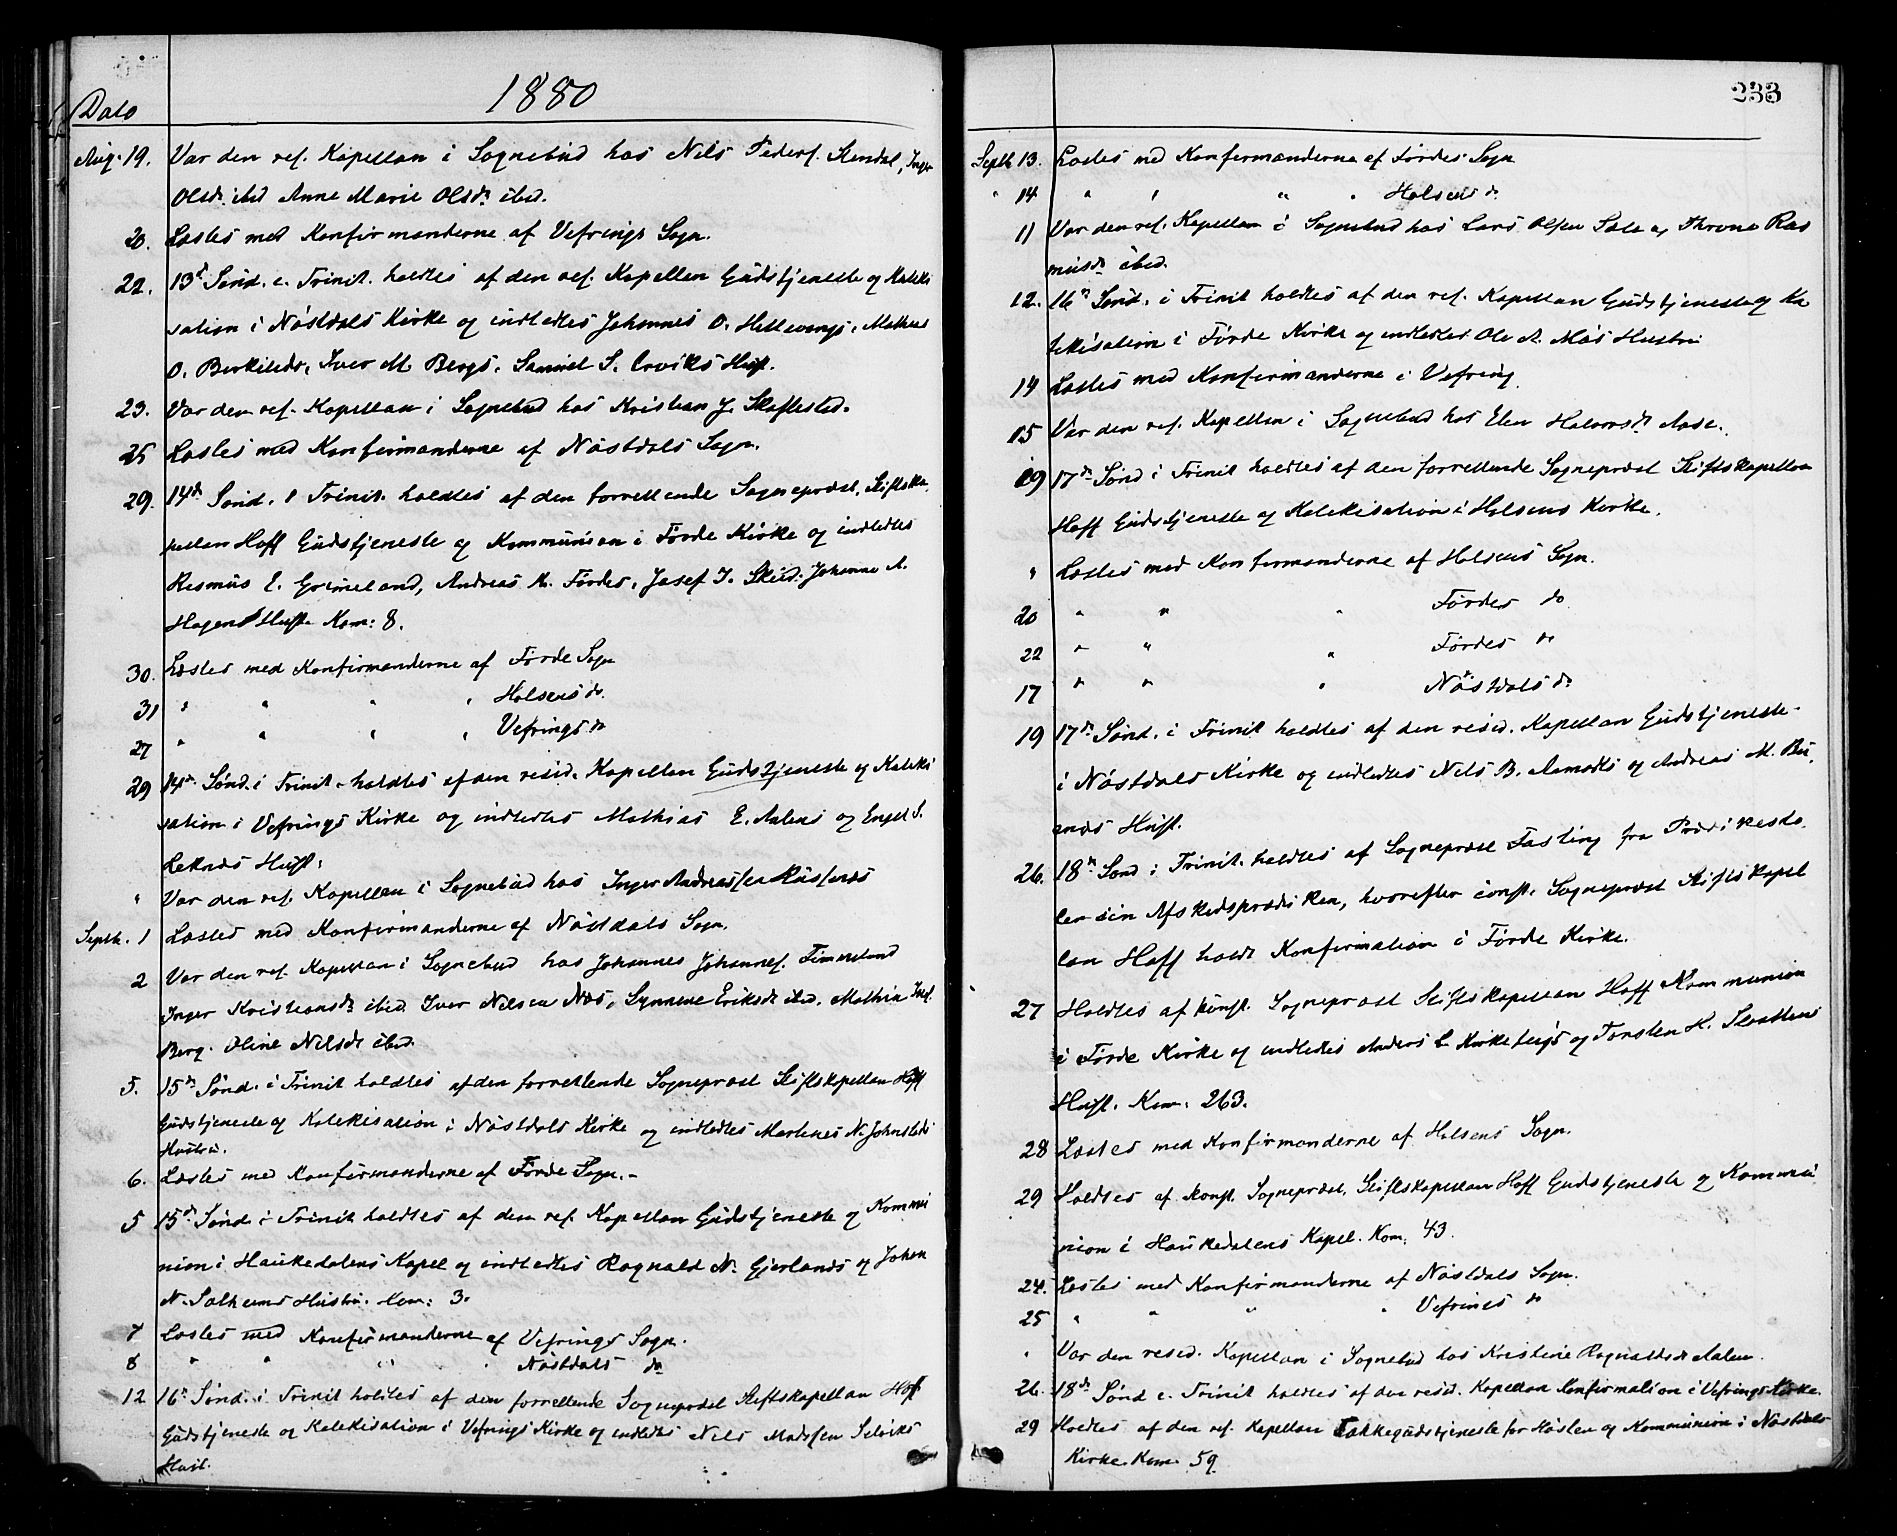 Dato
1880
Aug. 19. Var den res. Kapellan i Sognebud hos Nils Peders. Stendal, Inger
Olsdr ibid Anne Marie Olsdr ibid.
20. Læstes med Konfirmanderne af Vefrings Sogn.
22. 13de Sønd. e. Trinit. holdtes af den res. Kapellan Gudstjeneste og Kateki
sation i Nöstdals Kirke og indledtes Johannes O. Hellevangs, Mathias
O. Birkilids, Iver M. Bergs, Samuel S. Erviks Hust.
23. Var den res. Kapellan i Sognebud hos Kristian J. Skaflestad.
25 Læstes med Konfirmanderne af Nöstdals Sogn.
29. 14de Sönd. i Trinit. holdtes af den forrettende Sognepræst, Stiftska
pellan Hoff Gudstjeneste og Kommunion i Förde Kirke og indledtes
Rasmus E. Grimeland, Andreas A. Fördes, Josef J. Skeid, Johannes A.
Hagens Hustr. Kom: 8.
30. Læstes med Konfirmanderne af Förde Sogn
31 " " " " Holsens do.
27 " " " " Vefrings do
29 14de Sønd. i Trinit. holdtes af den resid. Kapellan Gudstjeneste og Kateki
sation i Vefrings Kirke og indledtes Mathias E. Aalens og Engel S.
Leknæs Hust.
" Var den res. Kapellan i Sognebud hos Inger Andreassen
Septb. 1 Læstes med Konfirmanderne af Nöstdals Sogn.
2 Var den res. Kapellan i Sognebud hos Johannes Johannes. Timmerlund
Inger Kristiansdr ibid. Iver Nilsen Næs, Synneve Eriksdr ibid. Mathia
Berg. Oline Nilsdr ibid.
5. 15de Sönd. i Trinit holdtes af den forrettende Sognepræst Stiftskapellan Hoff
Gudstjeneste og Katekisation i Nöstdals Kirke og indledtes Martinus N. Johnslids
Hustru.
6. Læstes med Konfirmanderne af Förde Sogn.
5 15de Sönd. i Trinit holdtes af den res. Kapellan Gudstjeneste og Kommu
nion i Haukedalens Kapel og indledtes Ragnald N. Gjerlands og Johan
N. Solheims Hustru. Kom: 3.
7 Læstes med Konfirmanderne af Vefrings Sogn.
8 " " " " Nöstdals do
12 16de Sönd. i Trinit holdtes af den forrettende Sognepræst Stiftskapellan Hoff
Gudstjeneste og Katekisation i Vefrings Kirke og indledtes Nils Madssen Selviks
Hust.
233
Septb 13. Læstes med Konfirmanderne af Fördes Sogn
" 14 " " " " Holsens do
11 Var den res. Kapellan i Sognebud hos Lars Olsen Sole og Throne Ras
musdr ibid.
12. 16de Sønd. i Trinit holdtes af den res. Kapellan Gudstjeneste og Ka
tekisation i Förde Kirke og indledtes Ole A. Mös Hustru
14 Læstes med Konfirmanderne i Vefring.
15 Var den res. Kapellan i Sognebud hos Elen Aase.
19 17de Sönd i Trinit holdtes af den forrettende Sognepræst Stiftskapellan
Hoff Gudstjeneste og Katekisation i Holsens Kirke.
" Læstes med Konfirmanderne af Holsens Sogn.
20 " " " Fördes do.
22 " " " Fördes do
17 " " " Nöstdals do
19 17de Sönd. i Trinit holdtes af den resid. Kapellan Gudstjeneste
i Nöstdals Kirke og indledtes Nils B. Aamodts og Andreas M. Bu
anes Hust.
26. 18de Sönd i Trinit. holdtes af Sognepræst Fasting fra Prædikesto
len sin Afskedsprædiken, hvorefter const. Sognepræst Stiftskapel
lan Hoff holdt Konfirmation i Förde Kirke.
27 Holdtes af konst. Sognepræst Stiftskapellan Hoff Kommunion
i Förde Kirke og indledtes Anders L Kirketeigs og Torsten H. Slaattens
Hust. Kom: 263.
28 Læstes med Konfirmanderne af Holsens Sogn.
29 Holdtes af konst. Sognepræst, Stiftskapellan Hoff Gudstjeneste og Kommu
nion i Haukedalens Kapel. Kom: 43.
24. Læstes med Konfirmanderne af Nöstdals Sogn.
25 " " " " Vefrings do
" Var den resid. Kapellan i Sognebud hos Kristine Ragnaldsdr Aalen.
26. 18de Sönd e. Trinit holdtes af den resid. Kapellan Konfirmation i Vefrings Kirke.
29 Holdtes af den res. Kapellan Takkegudstjeneste for Hösten og Kommunion i Nöstdals
Kirke. Kom. 59.